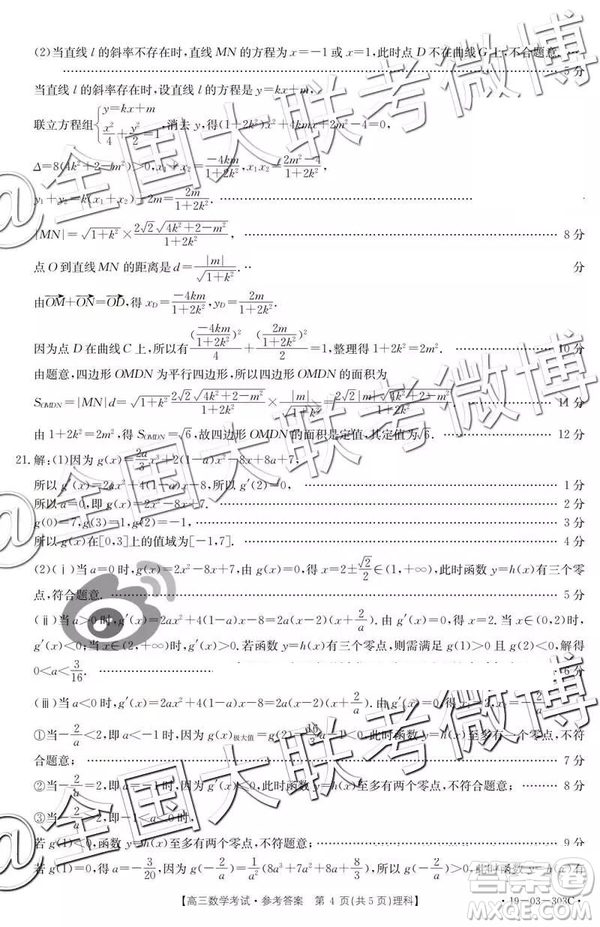 (2)当直线 l 的斜率不存在时,直线 MN 的方程为 x=-1 或 x=1,此时点 D 不在曲线 C 上,不合题意. 5 分
当直线 l 的斜率存在时,设直线 l 的方程是 y=kx+m,
联立方程组{y=kx+m, x²/4+y²/2=1,消去 y,得(1+2k²)x²+4kmx+2m²-4=0,
Δ=8(4k²+2-m²)>0,x₁+x₂=-4km/(1+2k²),x₁x₂=(2m²-4)/(1+2k²),
y₁+y₂=k(x₁+x₂)+2m=2m/(1+2k²),
|MN|=√(1+k²)×2√2√(4k²+2-m²)/(1+2k²), 8 分
点 O 到直线 MN 的距离是 d=|m|/√(1+k²). 分
由OM+ON=OD,得 x_D=-4km/(1+2k²),y_D=2m/(1+2k²).
因为点 D 在曲线 C 上,所以有(-4km/(1+2k²))²/4+(2m/(1+2k²))²/2=1,整理得 1+2k²=2m². 10 分
由题意,四边形 OMDN 为平行四边形,所以四边形 OMDN 的面积为
S_OMDN=|MN|d=√(1+k²)·2√2√(4k²+2-m²)/(1+2k²)×|m|/√(1+k²)=2√2|m|√(4k²+2-m²)/(1+2k²). 11 分
由 1+2k²=2m²,得 S_OMDN=√6,故四边形 OMDN 的面积是定值,其定值为√6. 12 分
21.解:(1)因为 g(x)=2a/3 x³+2(1-a)x²-8x+8a+7,
所以 g′(x)=2ax²+4(1-a)x-8, 1 分
所以 a=0,即 g(x)=2x²-8x+7. 2 分
g(0)=7,g(3)=1,g(2)=-1. 3 分
所以 g(x)在[0,3]上的值域为[-1,7]. 4 分
(2)(ⅰ)当 a=0 时,g(x)=2x²-8x+7,由 g(x)=0,得 x=2±√2/2∈(1,+∞),此时函数 y=h(x)有三个零
点,符合题意. 5 分
(ⅱ)当 a>0 时,g′(x)=2ax²+4(1-a)x-8=2a(x-2)(x+2/a).由 g′(x)=0,得 x=2.当 x∈(0,2)时,
g′(x)<0;当 x∈(2,+∞)时,g′(x)>0.若函数 y=h(x)有三个零点,则需满足 g(1)>0 且 g(2)<0,解得
0<a<3/16. 6 分
(ⅲ)当 a<0 时,g′(x)=2ax²+4(1-a)x-8=2a(x-2)(x+2/a).
①当-2/a<2,即 a<-1 时,因为 g(x)极大值=g(2)=16/3 a-1<0,此时函数 y=h(x)至多有一个零点,不符
合题意; 7 分
②当-2/a=2,即 a=-1 时,因为 g′(x)≤0,此时函数 y=h(x)至多有两个零点,不符合题意; 8 分
③当-2/a
若 g(1)<0, 9 分
若 g(1)=0,得 a=-3/20,因为 g(-2/a)=1/a²(8a³+7a²+8a+8/3),所以 g(-2/a)>0,此时函数 y=h(x)有
【高三数学考试·参考答案 第 4 页(共 5 页)理科】
·19-03-303C·
@全国大联考微博
@全国大联考微博
@全国大联考微博
答案圈